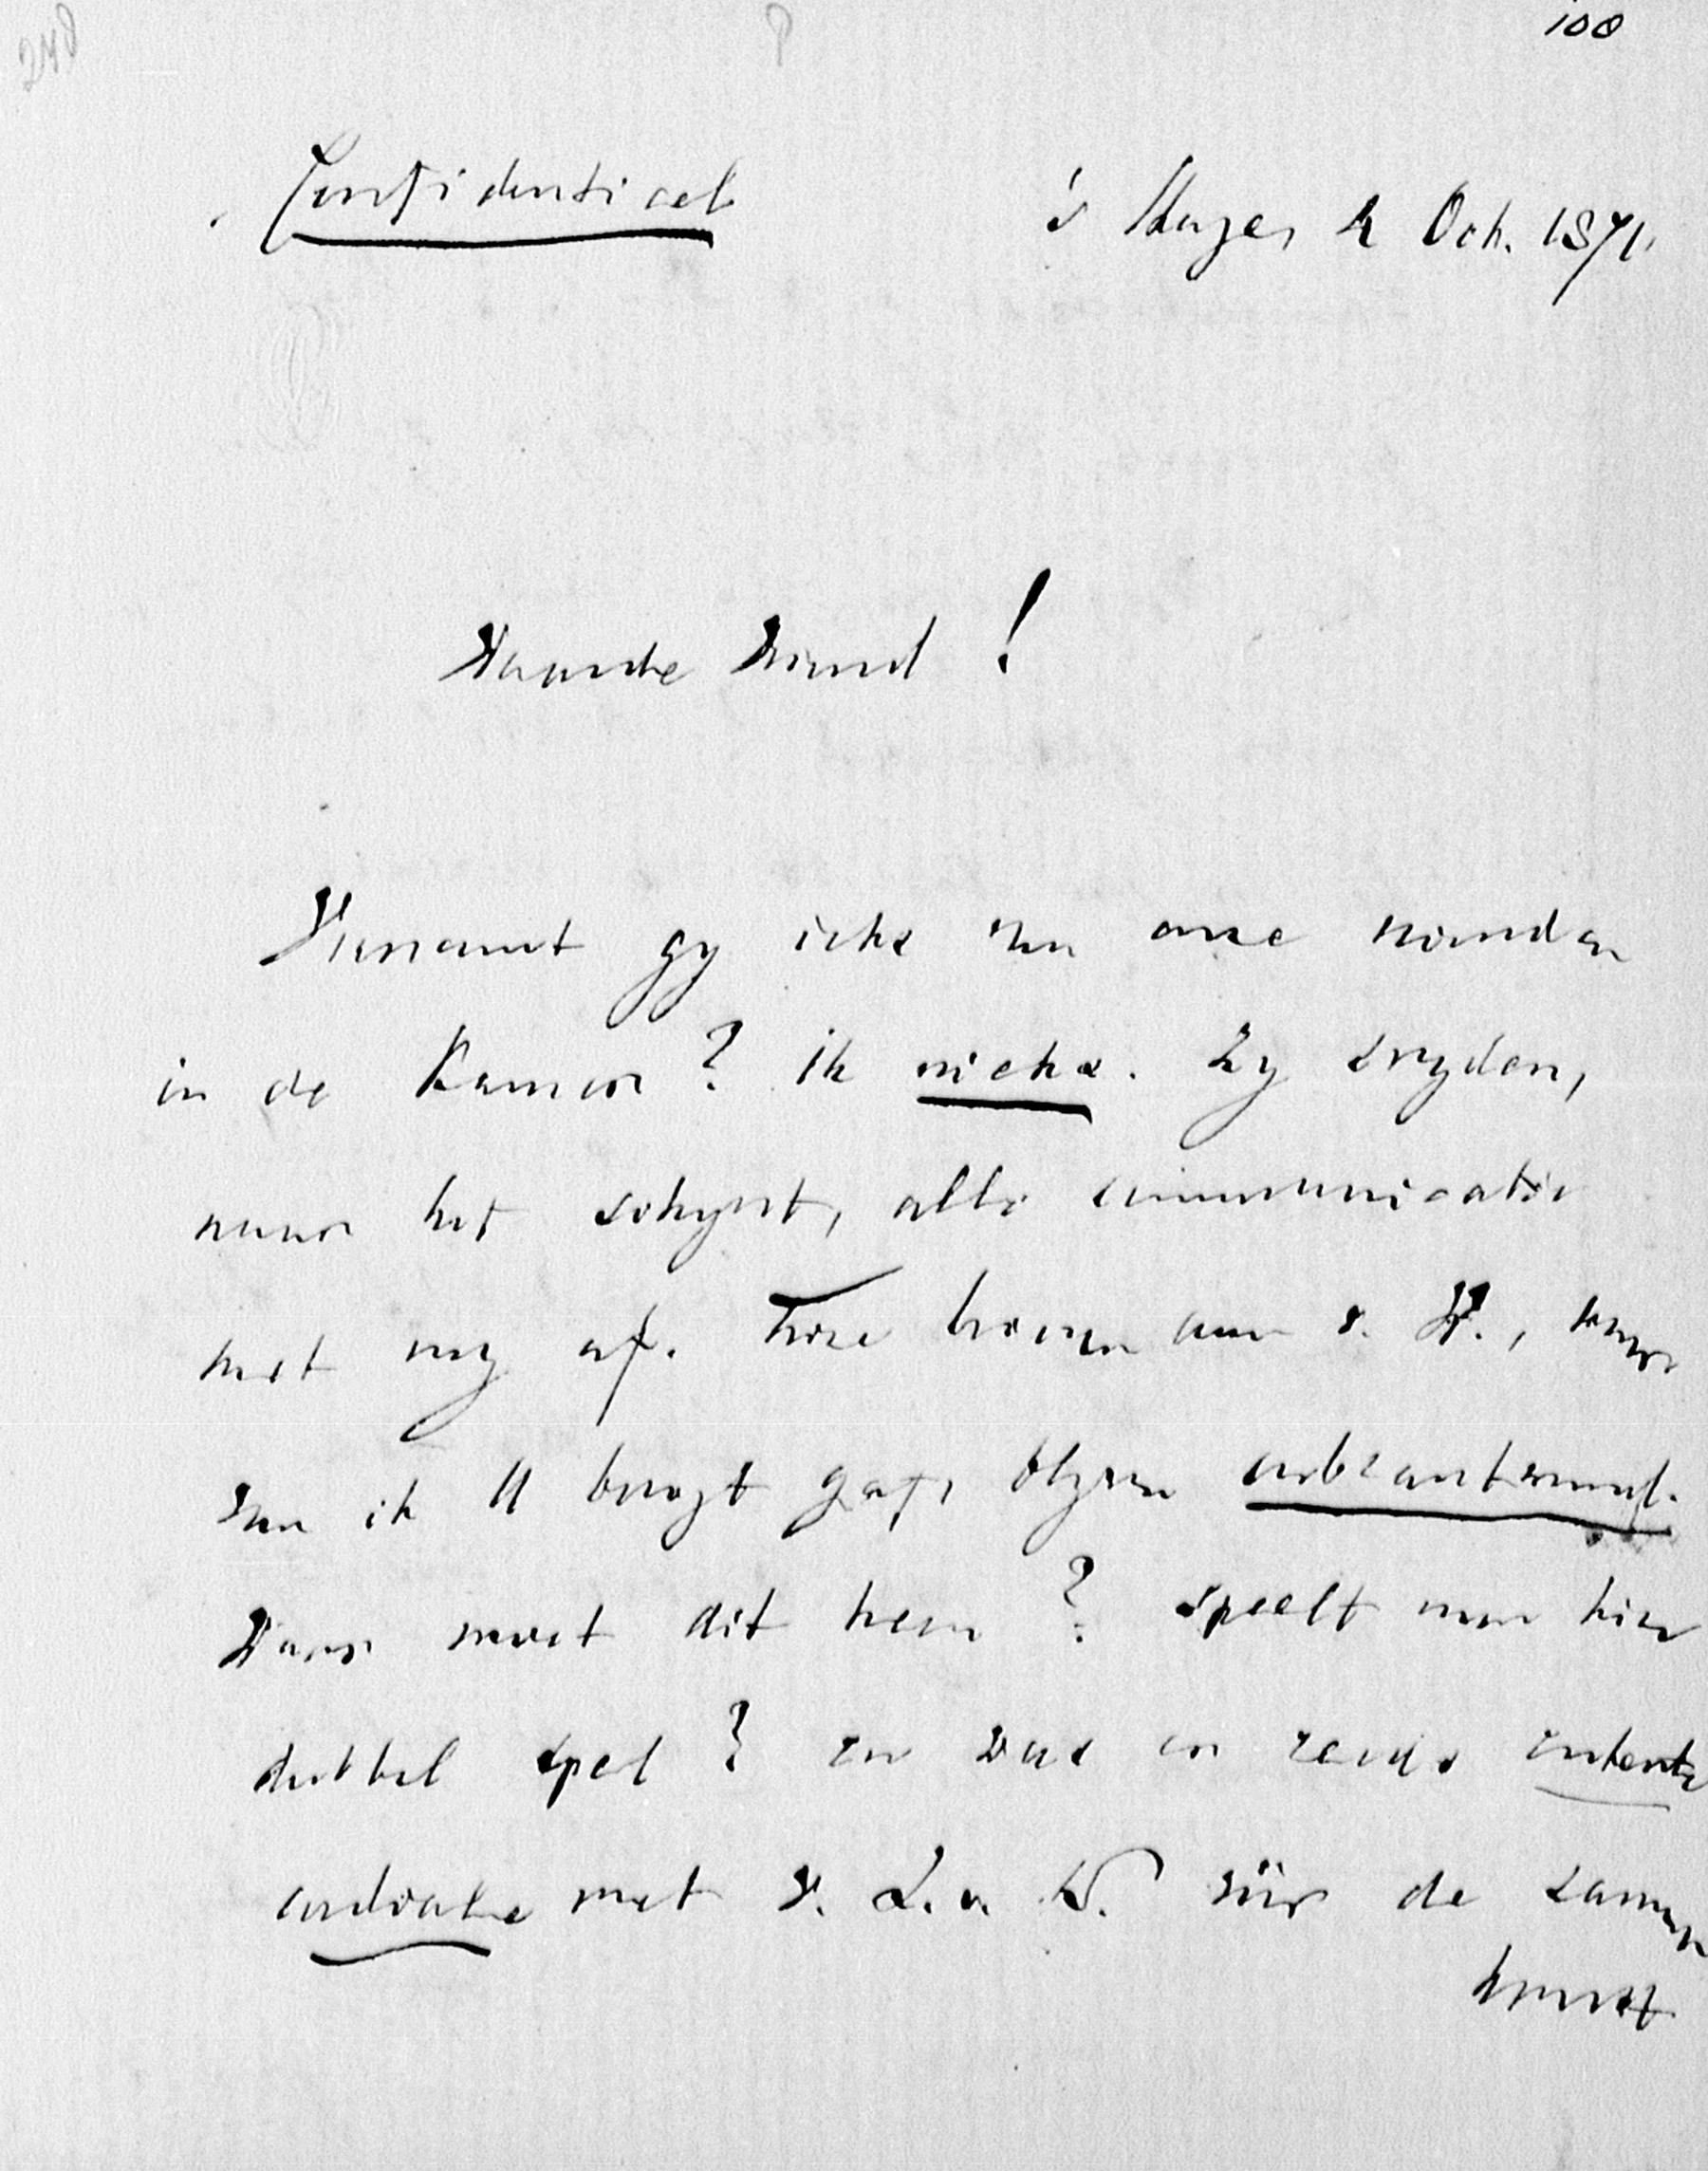 240
100
Confidentieel
's Hage, 2 Oct. 1871.
Waarde Vriend!
Verneemt gy iets van onze vrienden
in de Kamer? Ik niets. Zy snyden,
naar het schynt, alle communicatie
met my af. Twee brieven aan v. W., waar
van ik U berigt gaf, blyven onbeantwoord.
Waar moet dit heen? Speelt men hier
dubbel spel? en was er reeds entente
cordiale met v. L. v. W. vóór de samen
komst